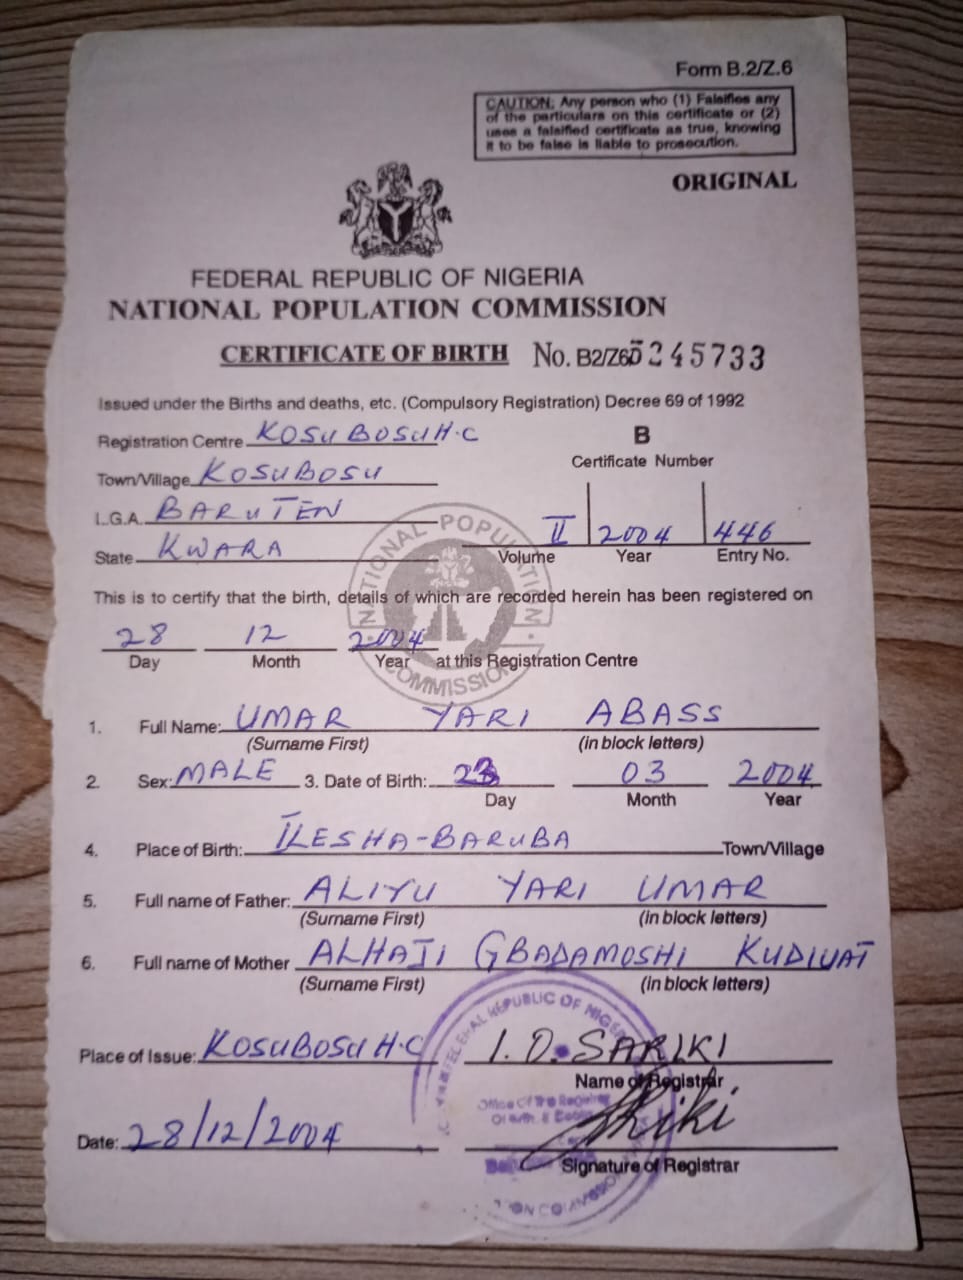 Form B.2/Z.6
CAUTION: Any person who (1) Falsifies any
of the particulars on this certificate or (2)
uses a falsified certificate as true, knowing
it to be false is liable to prosecution.
ORIGINAL
FEDERAL REPUBLIC OF NIGERIA
NATIONAL POPULATION COMMISSION
CERTIFICATE OF BIRTH No. B2/Z6 245733
Issued under the Births and deaths, etc. (Compulsory Registration) Decree 69 of 1992
Registration Centre KOSUBOSU H.C
B
Certificate Number
Town/Village KOSUBOSU
L.G.A. BARUTEN
State KWARA
II 2004 446
Volume Year Entry No.
NATIONAL POPULATION COMMISSION
This is to certify that the birth, details of which are recorded herein has been registered on
28 12 2004
Day Month Year at this Registration Centre
1. Full Name: UMAR YARI ABASS
(Surname First) (in block letters)
2. Sex: MALE 3. Date of Birth: 03 2004
Day Month Year
4. Place of Birth: ILESHA-BARUBA Town/Village
5. Full name of Father: ALIYU YARI UMAR
(Surname First) (in block letters)
6. Full name of Mother ALHAJI GBADAMOSHI
(Surname First) (in block letters)
Place of Issue: KOSUBOSU H.C I. O. SARIKI
Name of Registrar
Date: 28/12/2004
Signature of Registrar
REPUBLIC OF
Office Of The